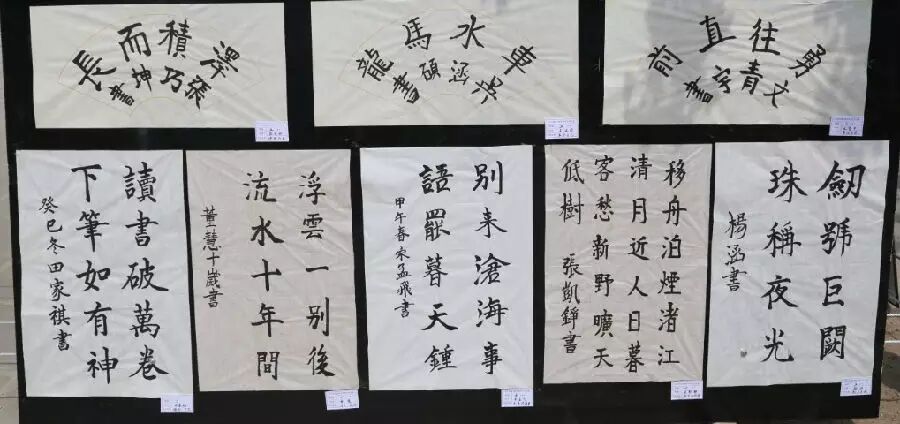 澤積而長
張巧坤書
車水馬龍
吳涵碩書
勇往直前
青書
讀書破萬卷
下筆如有神
癸巳冬田家祺書
浮雲一别後
流水十年間
董慧十歲書
别来滄海事
語罷暮天鐘
甲午春孟飛書
移舟泊煙渚江
清月近人日暮
客愁新野曠天
低樹 張凱錚書
劒號巨闕
珠稱夜光
楊涵書